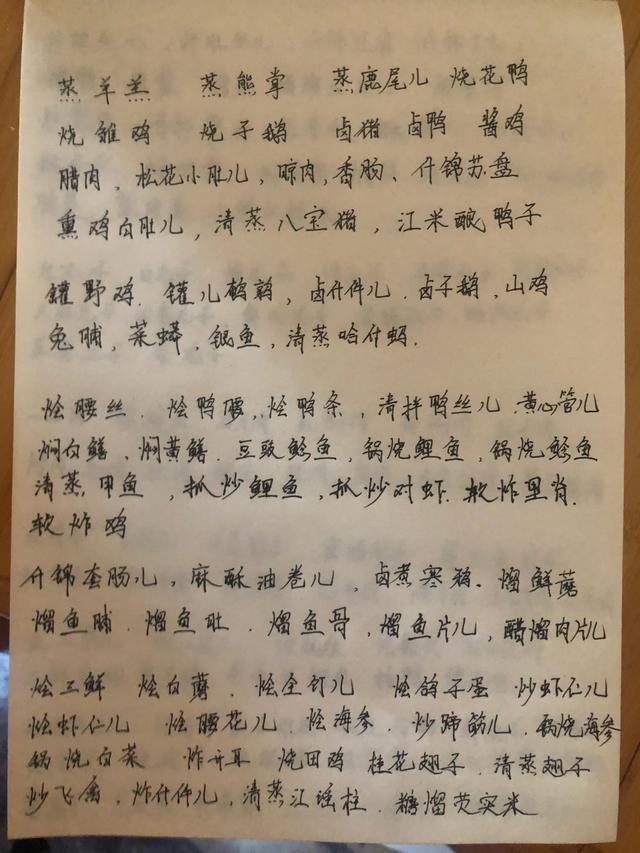 蒸羊羔 蒸熊掌 蒸鹿尾儿 烧花鸭
烧雏鸡 烧子鹅 卤猪 卤鸭 酱鸡
腊肉、松花小肚儿，晾肉，香肠、什锦苏盘
熏鸡白肚儿，清蒸八宝猪，江米酿鸭子
罐野鸡．罐儿鹌鹑，卤什件儿．卤子鹅，山鸡
兔脯，菜蟒，银鱼，清蒸哈什蚂．
烩腰丝．烩鸭腰，烩鸭条，清拌鸭丝儿．黄心管儿
焖白鳝，焖黄鳝．豆豉鲶鱼，锅烧鲤鱼，锅烧鲶鱼
清蒸，甲鱼，抓炒鲤鱼，抓炒对虾．软炸里脊．
软炸鸡
什锦套肠儿，麻酥油卷儿，卤煮寒鸦．熘鲜蘑
熘鱼脯．熘鱼肚．熘鱼骨，熘鱼片儿，醋熘肉片儿
烩三鲜 烩白蘑．烩全饤儿 烩鸽子蛋 炒虾仁儿
烩虾仁儿 烩腰花儿．烩海参．炒蹄筋儿．锅烧海参
锅烧白菜 炸开耳 烧田鸡 桂花翅子．清蒸翅子
炒飞禽，炸什件儿，清蒸江瑶柱．糖熘芡实米